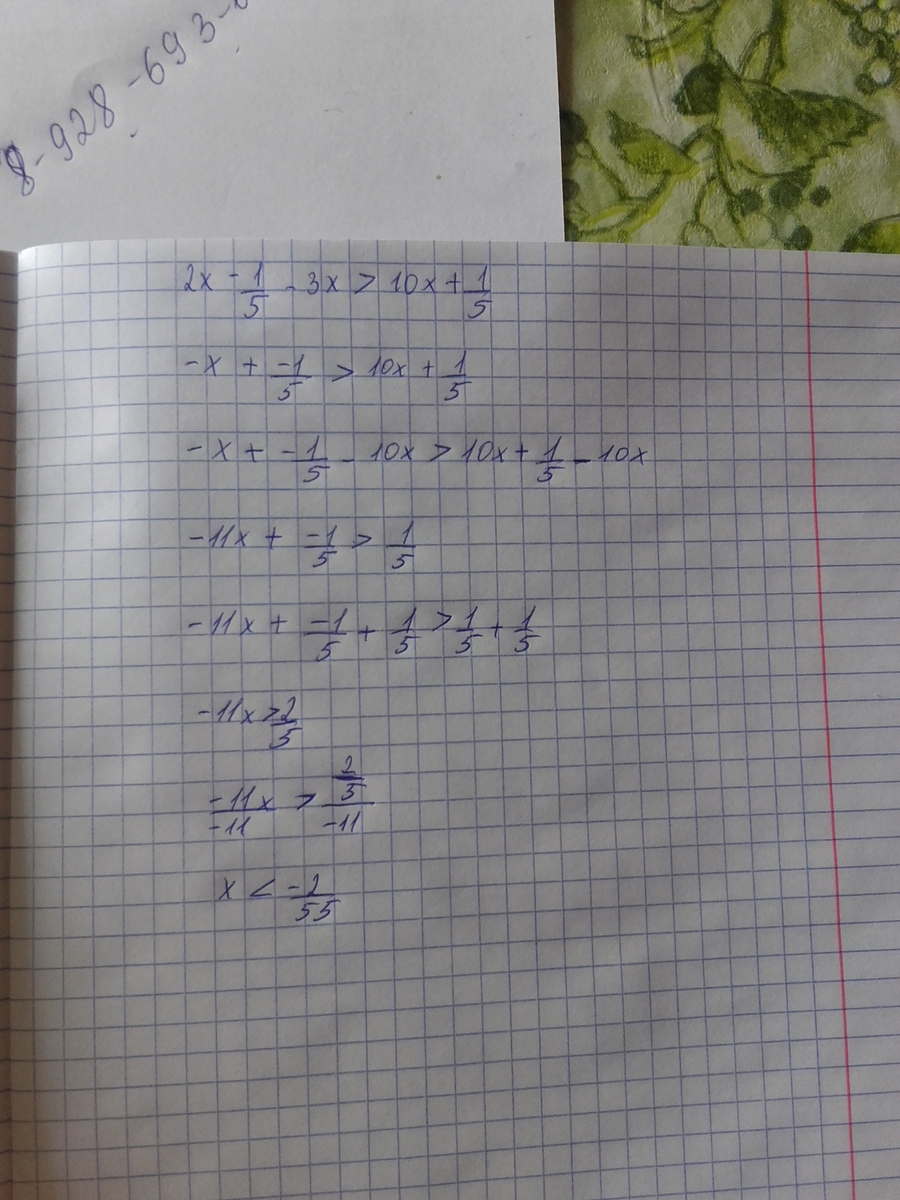 8-928-693-
2x - 1/5 - 3x > 10x + 1/5
-x + -1/5 > 10x + 1/5
-x + -1/5 - 10x > 10x + 1/5 - 10x
-11x + -1/5 > 1/5
-11x + -1/5 + 1/5 > 1/5 + 1/5
-11x > 2/5
-11x/-11 > (2/5)/-11
x < -2/55